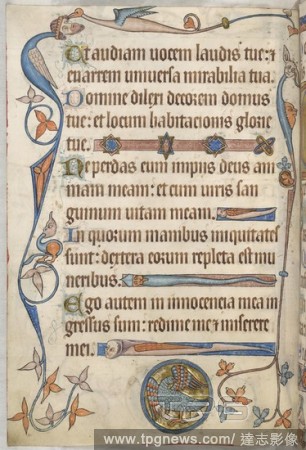 Ut audiam uocem laudis tue: et
enarrem uniuersa mirabilia tua.
Domine dilexi decorem domus
tue: et locum habitacionis glorie
tue.
Ne perdas cum impijs deus ani
mam meam: et cum uiris san
guinum uitam meam.
In quorum manibus iniquitates
sunt: dextera eorum repleta est mu
neribus.
Ego autem in innocencia mea in
gressus sum: redime me et miserere
mei.
www.tpgnews.com/ 達志影像